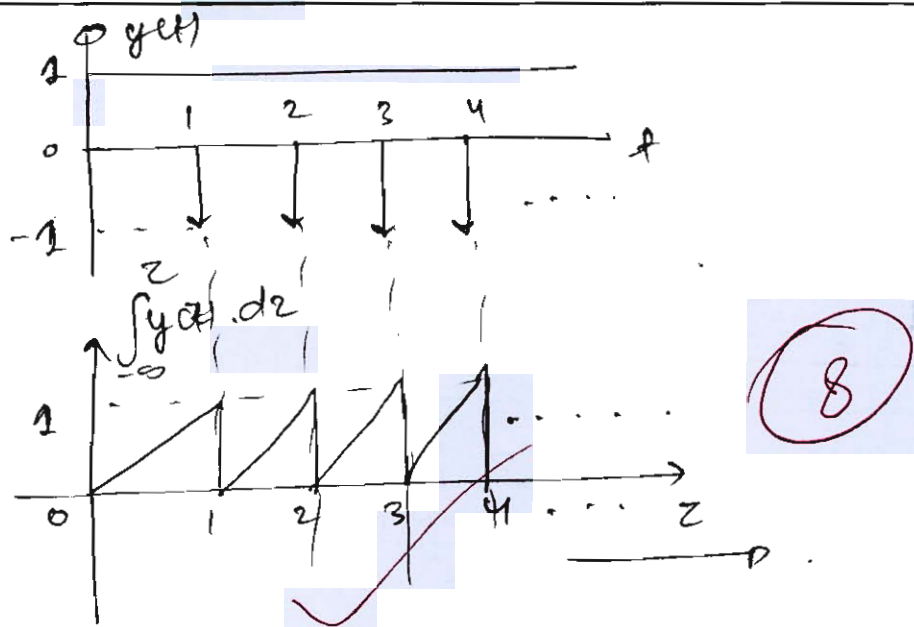 y(t)
1
1 2 3 4
0 t
. . . .
-1
∫ y(z).dz
-∞
1 . . . . .
8
0 1 2 3 4 . . . . z